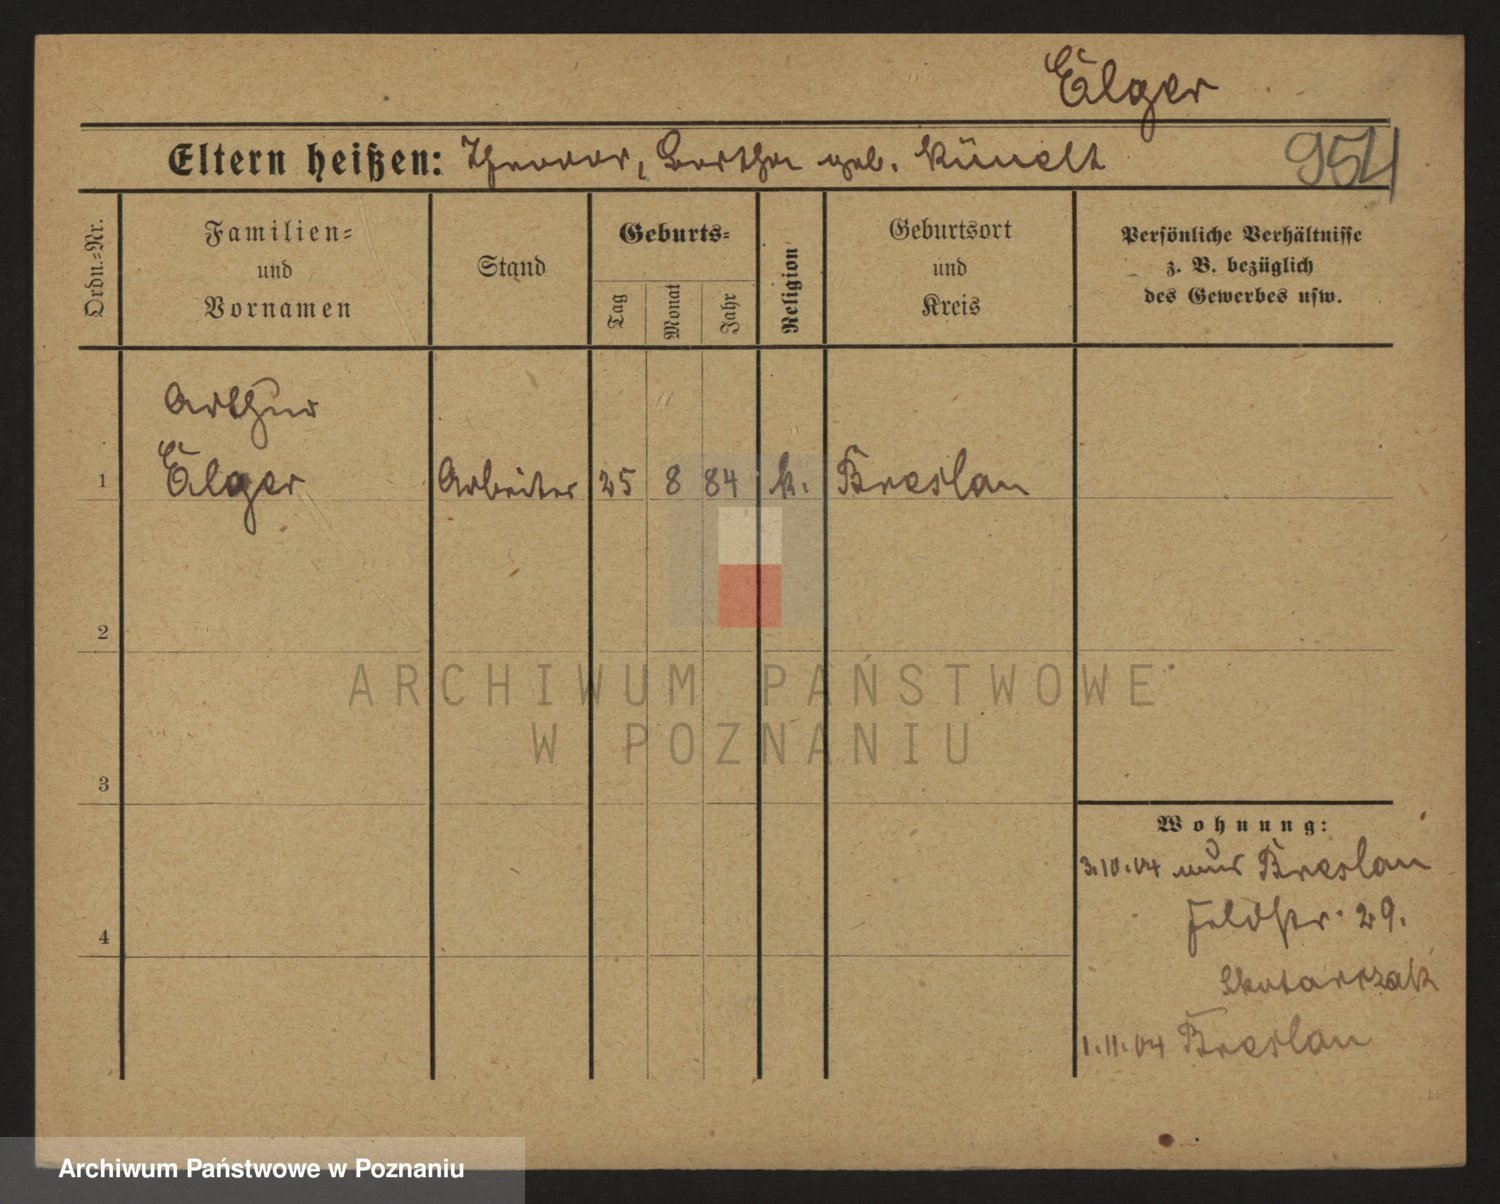 Elger
Eltern heißen: Theodor, Bertha geb. Künelt
954
Ordn.-Nr.
Familien-
und
Vornamen
Stand
Geburts-
Tag
Monat
Jahr
Religion
Geburtsort
und
Kreis
Persönliche Verhältnisse
z. B. bezüglich
des Gewerbes usw.
Arthur
1 Elger Arbeiter 25 8 84 k. Breslau
2
3
4
Wohnung:
3.10.04 aus Breslau
Feldstr. 29.
Skotarczak
1.11.04 Breslau
ARCHIWUM PAŃSTWOWE
W POZNANIU
Archiwum Państwowe w Poznaniu